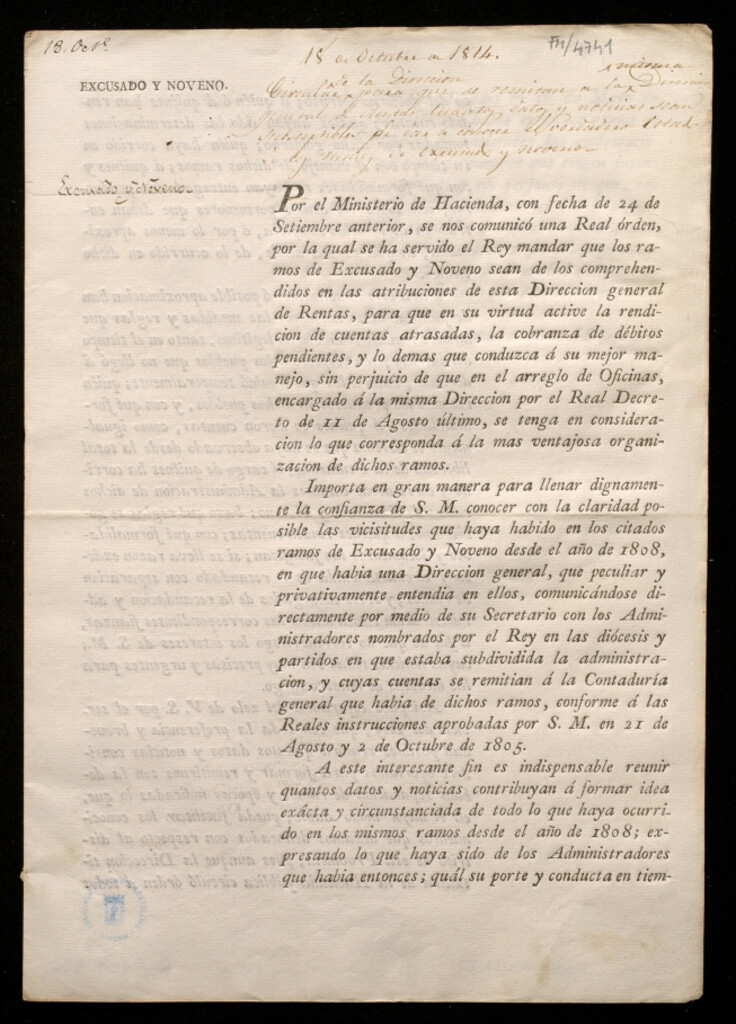 18. Oct.e
18 de Octubre de 1814.
FM/4741
EXCUSADO Y NOVENO.
Circular de la Direccion para que se remitan a la misma Direccion
general de Rentas quantos datos y noticias sean
susceptibles de dar a conocer el verdadero estado
de ramos de excusado y noveno
Excusado y Noveno
Por el Ministerio de Hacienda, con fecha de 24 de
Setiembre anterior, se nos comunicó una Real órden,
por la qual se ha servido el Rey mandar que los ra-
mos de Excusado y Noveno sean de los comprehen-
didos en las atribuciones de esta Direccion general
de Rentas, para que en su virtud active la rendi-
cion de cuentas atrasadas, la cobranza de débitos
pendientes, y lo demas que conduzca á su mejor ma-
nejo, sin perjuicio de que en el arreglo de Oficinas,
encargado á la misma Direccion por el Real Decre-
to de 11 de Agosto último, se tenga en considera-
cion lo que corresponda á la mas ventajosa organi-
zacion de dichos ramos.
Importa en gran manera para llenar dignamen-
te la confianza de S. M. conocer con la claridad po-
sible las vicisitudes que haya habido en los citados
ramos de Excusado y Noveno desde el año de 1808,
en que habia una Direccion general, que peculiar y
privativamente entendia en ellos, comunicándose di-
rectamente por medio de su Secretario con los Admi-
nistradores nombrados por el Rey en las diócesis y
partidos en que estaba subdividida la administra-
cion, y cuyas cuentas se remitian á la Contaduría
general que habia de dichos ramos, conforme á las
Reales instrucciones aprobadas por S. M. en 21 de
Agosto y 2 de Octubre de 1805.
A este interesante fin es indispensable reunir
quantos datos y noticias contribuyan á formar idea
exácta y circunstanciada de todo lo que haya ocurri-
do en los mismos ramos desde el año de 1808; ex-
presando lo que haya sido de los Administradores
que habia entonces; quál su porte y conducta en tiem-